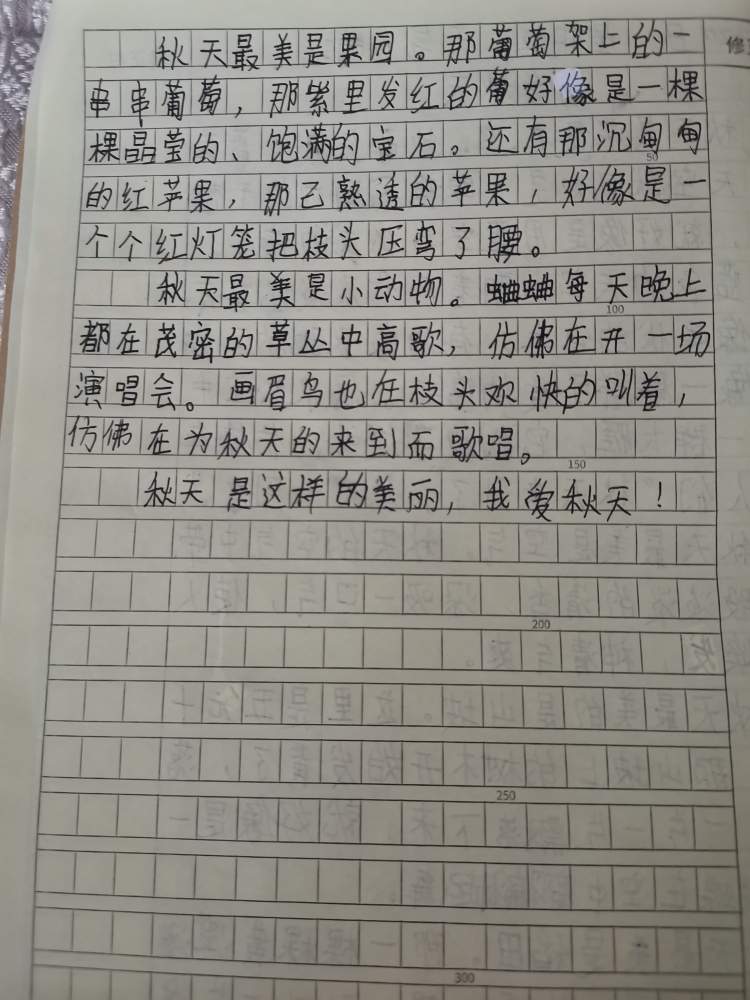 秋天最美是果园。那葡萄架上的一
串串葡萄，那紫里发红的葡好像是一棵
棵晶莹的、饱满的宝石。还有那沉甸甸
50
的红苹果，那已熟透的苹果，好像是一
个个红灯笼把枝头压弯了腰。
秋天最美是小动物。蛐蛐每天晚上
100
都在茂密的草丛中高歌，仿佛在开一场
演唱会。画眉鸟也在枝头欢快的叫着，
仿佛在为秋天的来到而歌唱。
150
秋天是这样的美丽，我爱秋天！
200
250
300